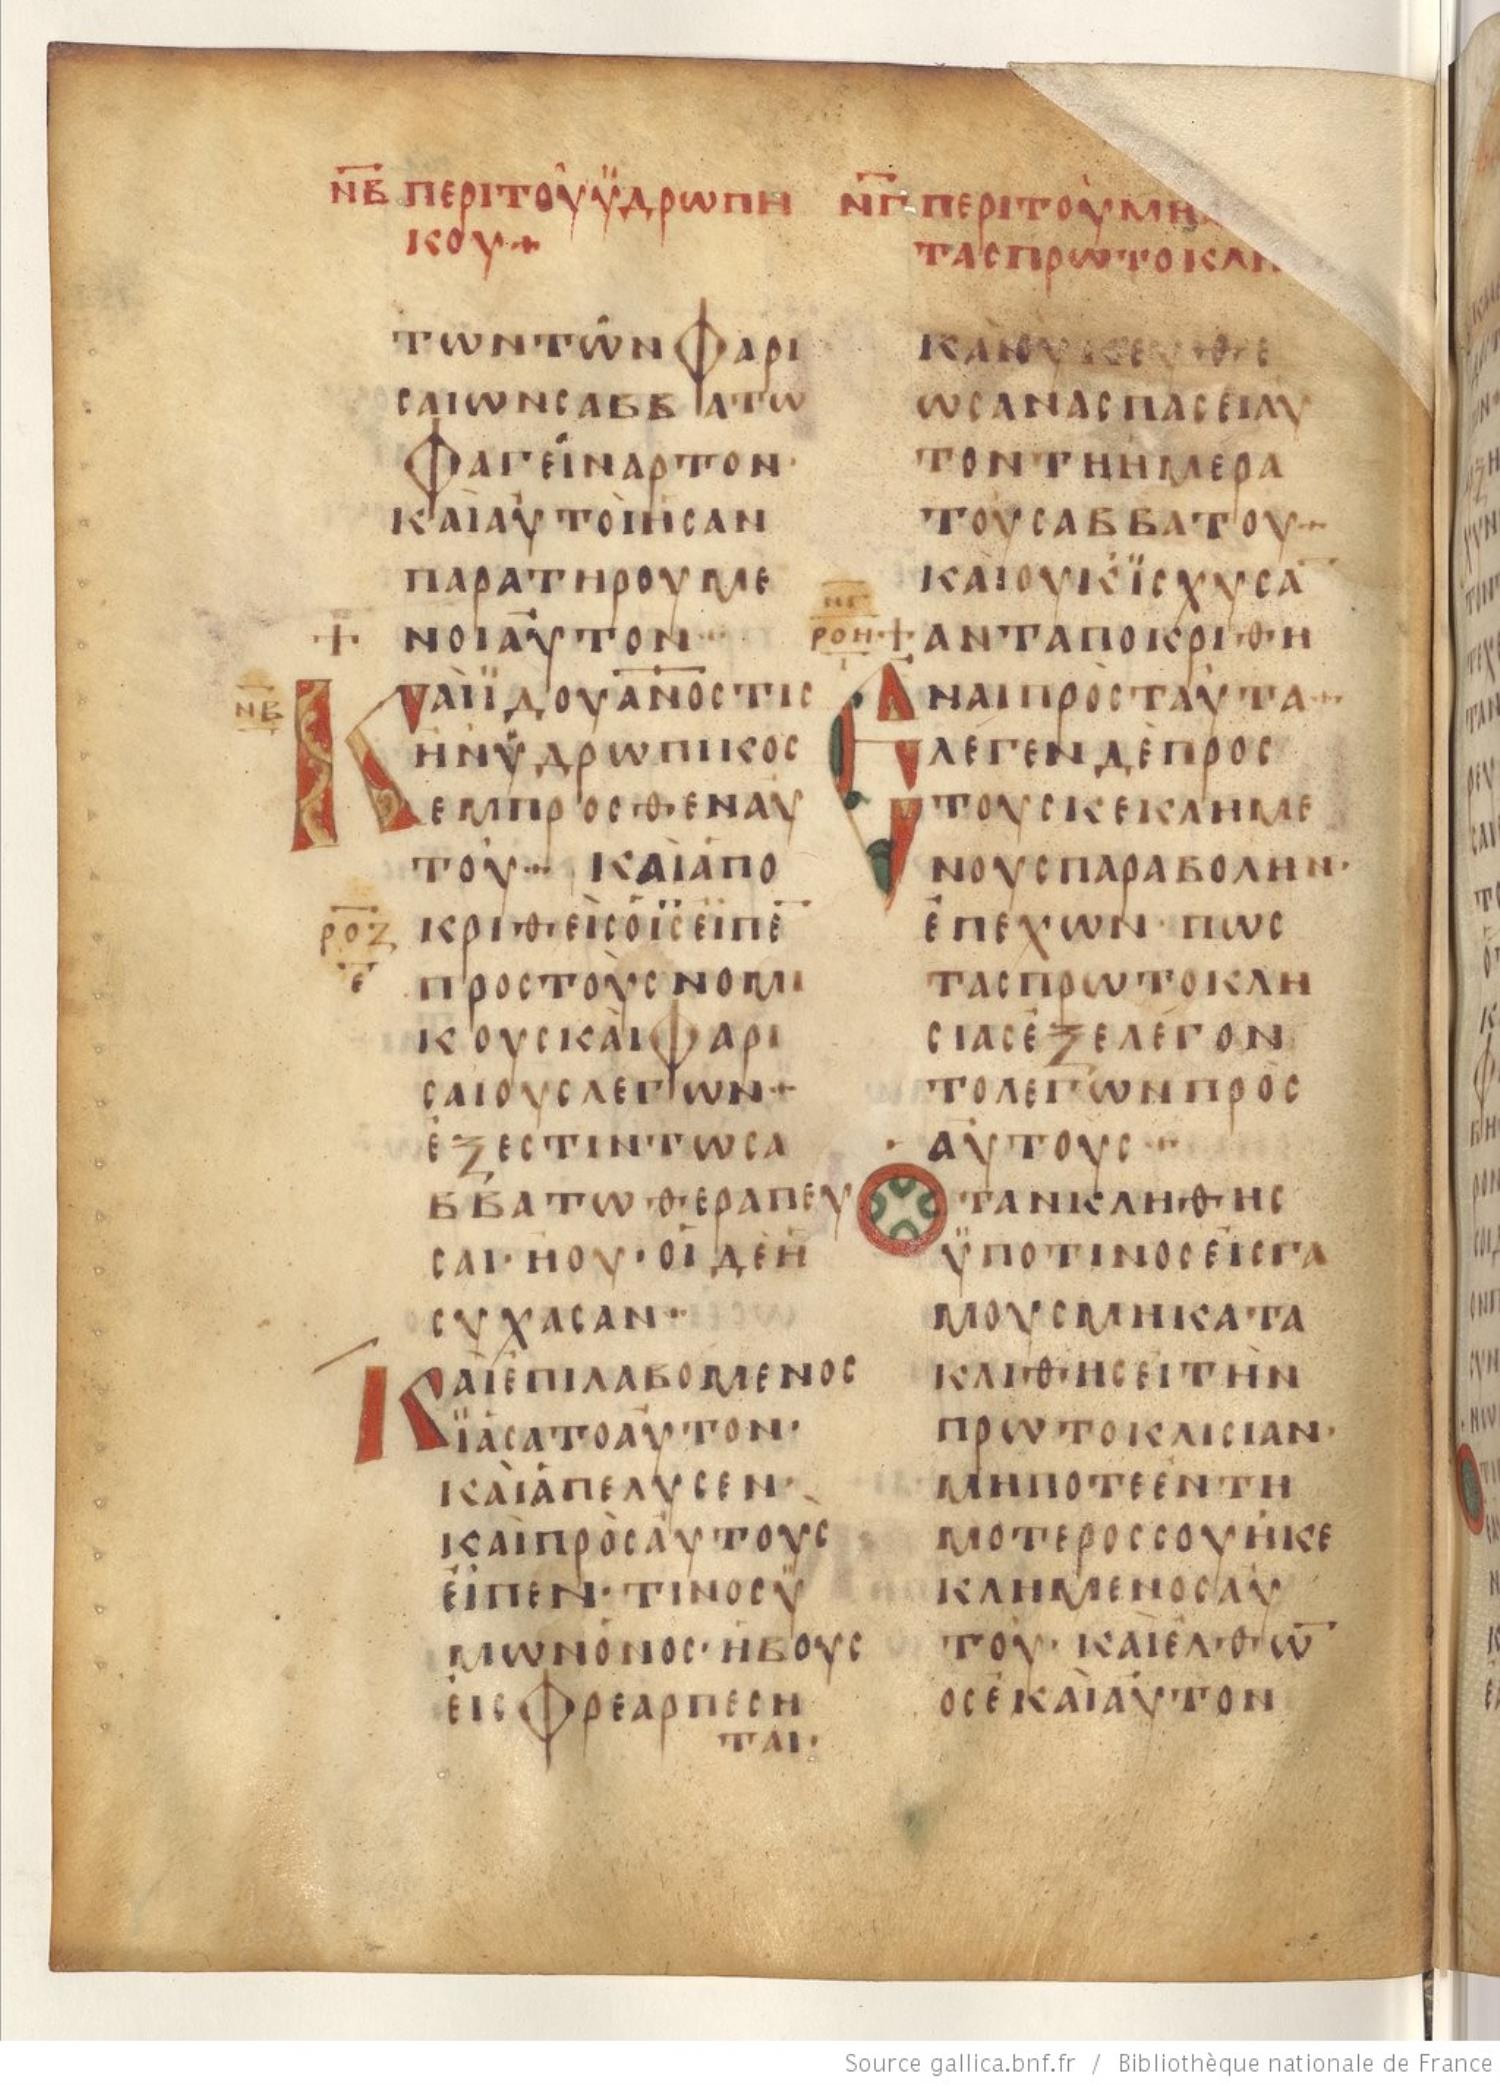 ΝΒ ΠΕΡΙ ΤΟΥ ΥΔΡΩΠΗ
ΚΟΥ+
ΤΩΝ ΤΩΝ ΦΑΡΙ
ΣΑΙΩΝ ΣΑΒΒΑΤΩ
ΦΑΓΕΙΝ ΑΡΤΟΝ·
ΚΑΙ ΑΥΤΟΙ ΗΣΑΝ
ΠΑΡΑΤΗΡΟΥΜΕ
+ ΝΟΙ ΑΥΤΟΝ··
ΝΒ ΚΑΙ ΪΔΟΥ ΑΝΟΣ ΤΙΣ
ΗΝ ΥΔΡΩΠΙΚΟΣ
ΕΜΠΡΟΣΘΕΝ ΑΥ
ΤΟΥ·· ΚΑΙ ΑΠΟ
ΡΟΖ ΚΡΙΘΕΙΣ Ο ΙΣ ΕΙΠΕ
Ε ΠΡΟΣ ΤΟΥΣ ΝΟΜΙ
ΚΟΥΣ ΚΑΙ ΦΑΡΙ
ΣΑΙΟΥΣ ΛΕΓΩΝ+
ΕΞΕΣΤΙΝ ΤΩ ΣΑ
ΒΒΑΤΩ ΘΕΡΑΠΕΥ
ΣΑΙ· Η ΟΥ· ΟΙ ΔΕ Η
ΣΥΧΑΣΑΝ··
ΚΑΙ ΕΠΙΛΑΒΟΜΕΝΟΣ
ΪΑΣΑΤΟ ΑΥΤΟΝ·
ΚΑΙ ΑΠΕΛΥΣΕΝ·
ΚΑΙ ΠΡΟΣ ΑΥΤΟΥΣ
ΕΙΠΕΝ· ΤΙΝΟΣ Υ
ΜΩΝ ΟΝΟΣ· Η ΒΟΥΣ
ΕΙΣ ΦΡΕΑΡ ΠΕΣΗ
ΤΑΙ·
ΝΓ ΠΕΡΙ ΤΟΥ ΜΗ
ΤΑΣ ΠΡΩΤΟΚΛΗ
ΚΑΙ ΟΥΚ ΕΥΘΕ
ΩΣ ΑΝΑΣΠΑΣΕΙ ΑΥ
ΤΟΝ ΤΗ ΗΜΕΡΑ
ΤΟΥ ΣΑΒΒΑΤΟΥ+
ΚΑΙ ΟΥΚ ΪΣΧΥΣΑ
ΝΓ
ΡΟΗ + ΑΝΤΑΠΟΚΡΙΘΗ
ΝΑΙ ΠΡΟΣ ΤΑΥΤΑ+
ΕΛΕΓΕΝ ΔΕ ΠΡΟΣ
ΤΟΥΣ ΚΕΚΛΗΜΕ
ΝΟΥΣ ΠΑΡΑΒΟΛΗΝ·
ΕΠΕΧΩΝ· ΠΩΣ
ΤΑΣ ΠΡΩΤΟΚΛΗ
ΣΙΑΣ ΕΞΕΛΕΓΟΝ
ΤΟ ΛΕΓΩΝ ΠΡΟΣ
ΑΥΤΟΥΣ··
ΟΤΑΝ ΚΛΗΘΗΣ
ΫΠΟ ΤΙΝΟΣ ΕΙΣ ΓΑ
ΜΟΥΣ ΜΗ ΚΑΤΑ
ΚΛΙΘΗΣ ΕΙ ΤΗΝ
ΠΡΩΤΟΚΛΙΣΙΑΝ·
ΜΗΠΟΤΕ ΕΝΤΗ
ΜΟΤΕΡΟΣ ΣΟΥ Η ΚΕ
ΚΛΗΜΕΝΟΣ ΑΥ
ΤΟΥ· ΚΑΙ ΕΛΘΩ
Ο ΣΕ ΚΑΙ ΑΥΤΟΝ
Source gallica.bnf.fr / Bibliothèque nationale de France